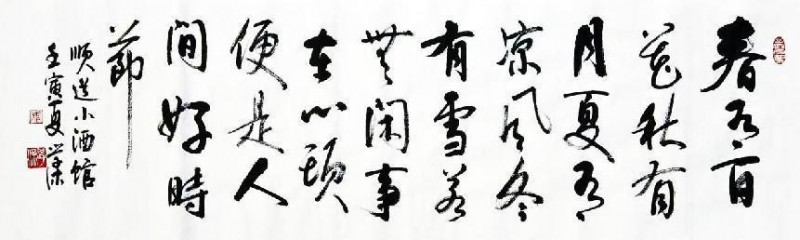 春有百
花秋有
月夏有
凉风冬
有雪若
無闲事
在心頭
便是人
間好時
節
順送小酒馆
壬寅夏